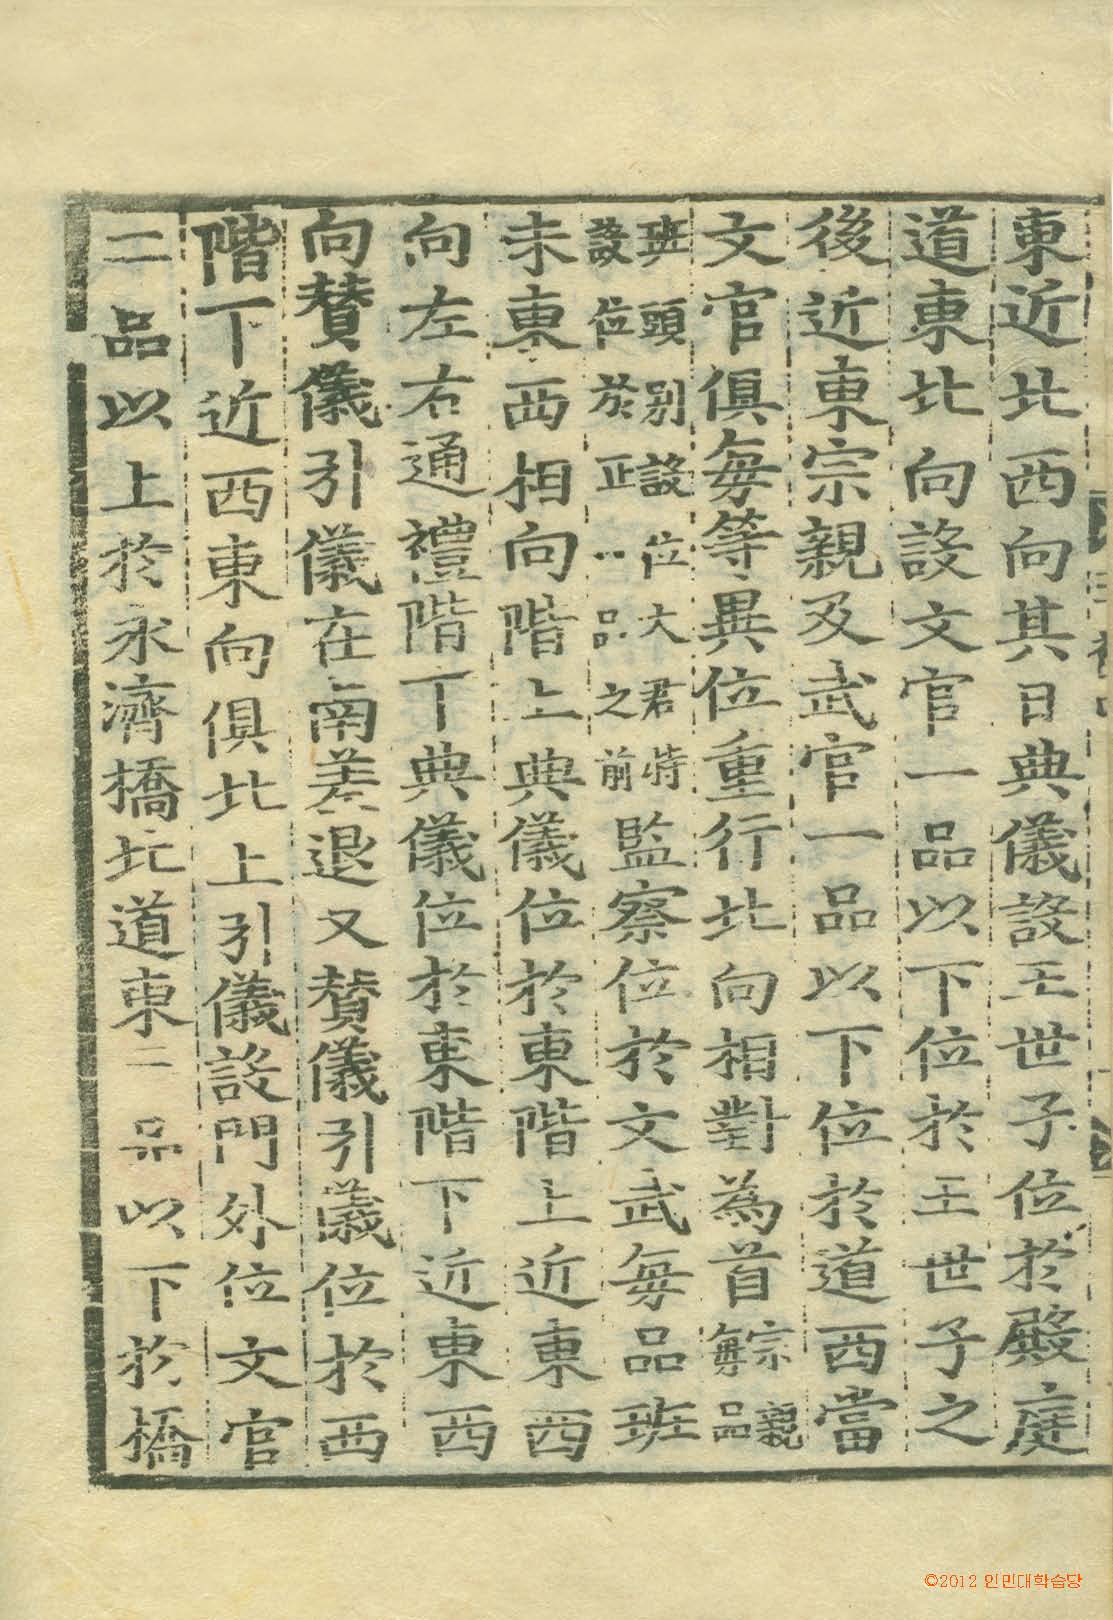 東近北西向其日典儀設王世子位於殿庭
道東北向設文官一品以下位於王世子之
後近東宗親及武官一品以下位於道西當
文官俱每等異位重行北向相對為首宗親每品
班頭別設位大君特設位於正一品之前監察位於文武每品班
末東西相向階上典儀位於東階上近東西
向左右通禮階下典儀位於東階下近東西
向贊儀引儀在南差退又贊儀引儀位於西
階下近西東向俱北上引儀設門外位文官
二品以上於永濟橋北道東二品以下於橋
©2012 인민대학습당